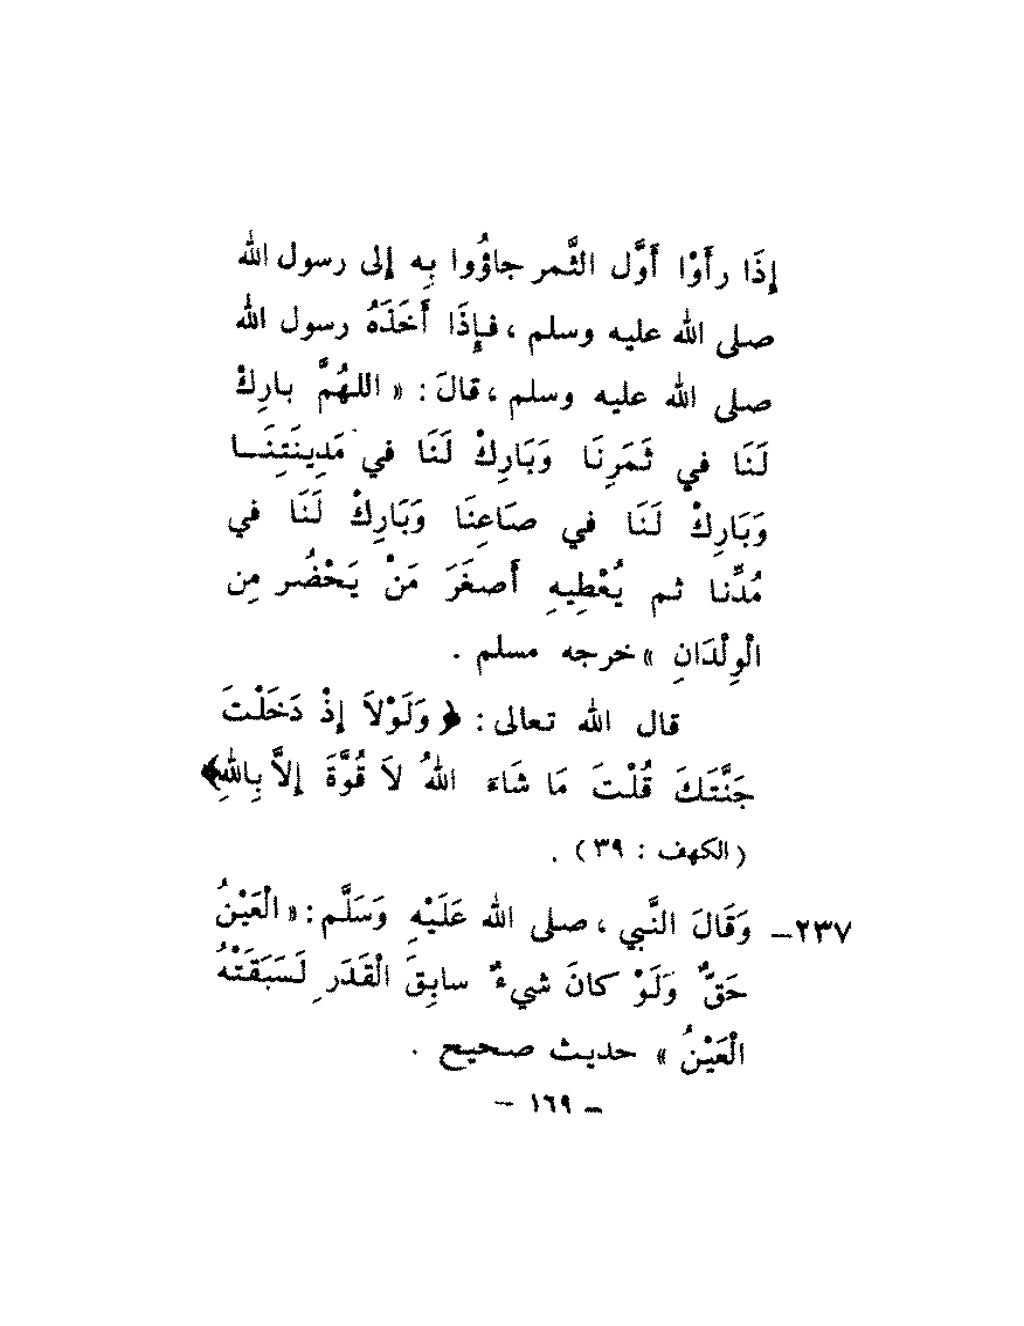 إِذَا رأَوْا أَوَّل الثَّمر جاؤُوا بِه إلى رسول الله
صلى الله عليه وسلم ، فإِذَا أَخَذَهُ رسول الله
صلى الله عليه وسلم ، قالَ : « اللهُمَّ بارِكْ
لَنَا في ثَمَرِنَا وَبَارِكْ لَنَا في مَدِينَتِنَــا
وَبَارِكْ لَنَا في صَاعِنَا وَبَارِكْ لَنَا في
مُدِّنا ثم يُعْطِيهِ أَصغَرَ مَنْ يَحْضُر مِن
الْوِلْدَانِ » خرجه مسلم .
قال الله تعالى : ﴿ وَلَوْلاَ إِذْ دَخَلْتَ
جَنَّتَكَ قُلْتَ مَا شَاءَ اللهُ لاَ قُوَّةَ إِلاَّ بِاللهِ﴾
( الكهف : ٣٩ ) .
٢٣٧– وَقَالَ النَّبي ، صلى الله عَلَيْهِ وَسَلَّم : « الْعَيْنُ
حَقٌّ وَلَوْ كانَ شيءٌ سابِقَ الْقَدَرِ لَسَبَقَتْهُ
الْعَيْنُ » حديث صحيح .
– ١٦٩ –